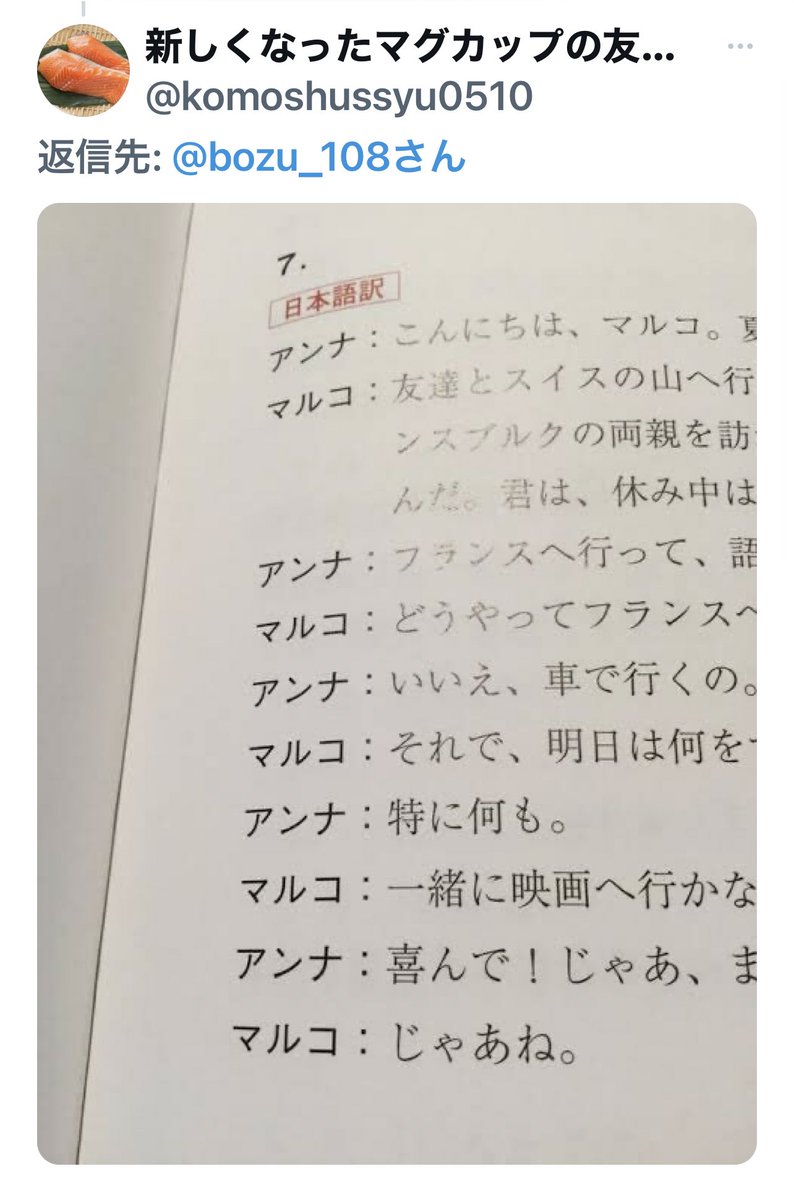 新しくなったマグカップの友...
@komoshussyu0510
返信先: @bozu_108さん
7.
日本語訳
アンナ：こんにちは、マルコ。夏
マルコ：友達とスイスの山へ行
ンスブルクの両親を訪
んだ。君は、休み中は
アンナ：フランスへ行って、語
マルコ：どうやってフランスへ
アンナ：いいえ、車で行くの。
マルコ：それで、明日は何を
アンナ：特に何も。
マルコ：一緒に映画へ行かな
アンナ：喜んで！じゃあ、ま
マルコ：じゃあね。